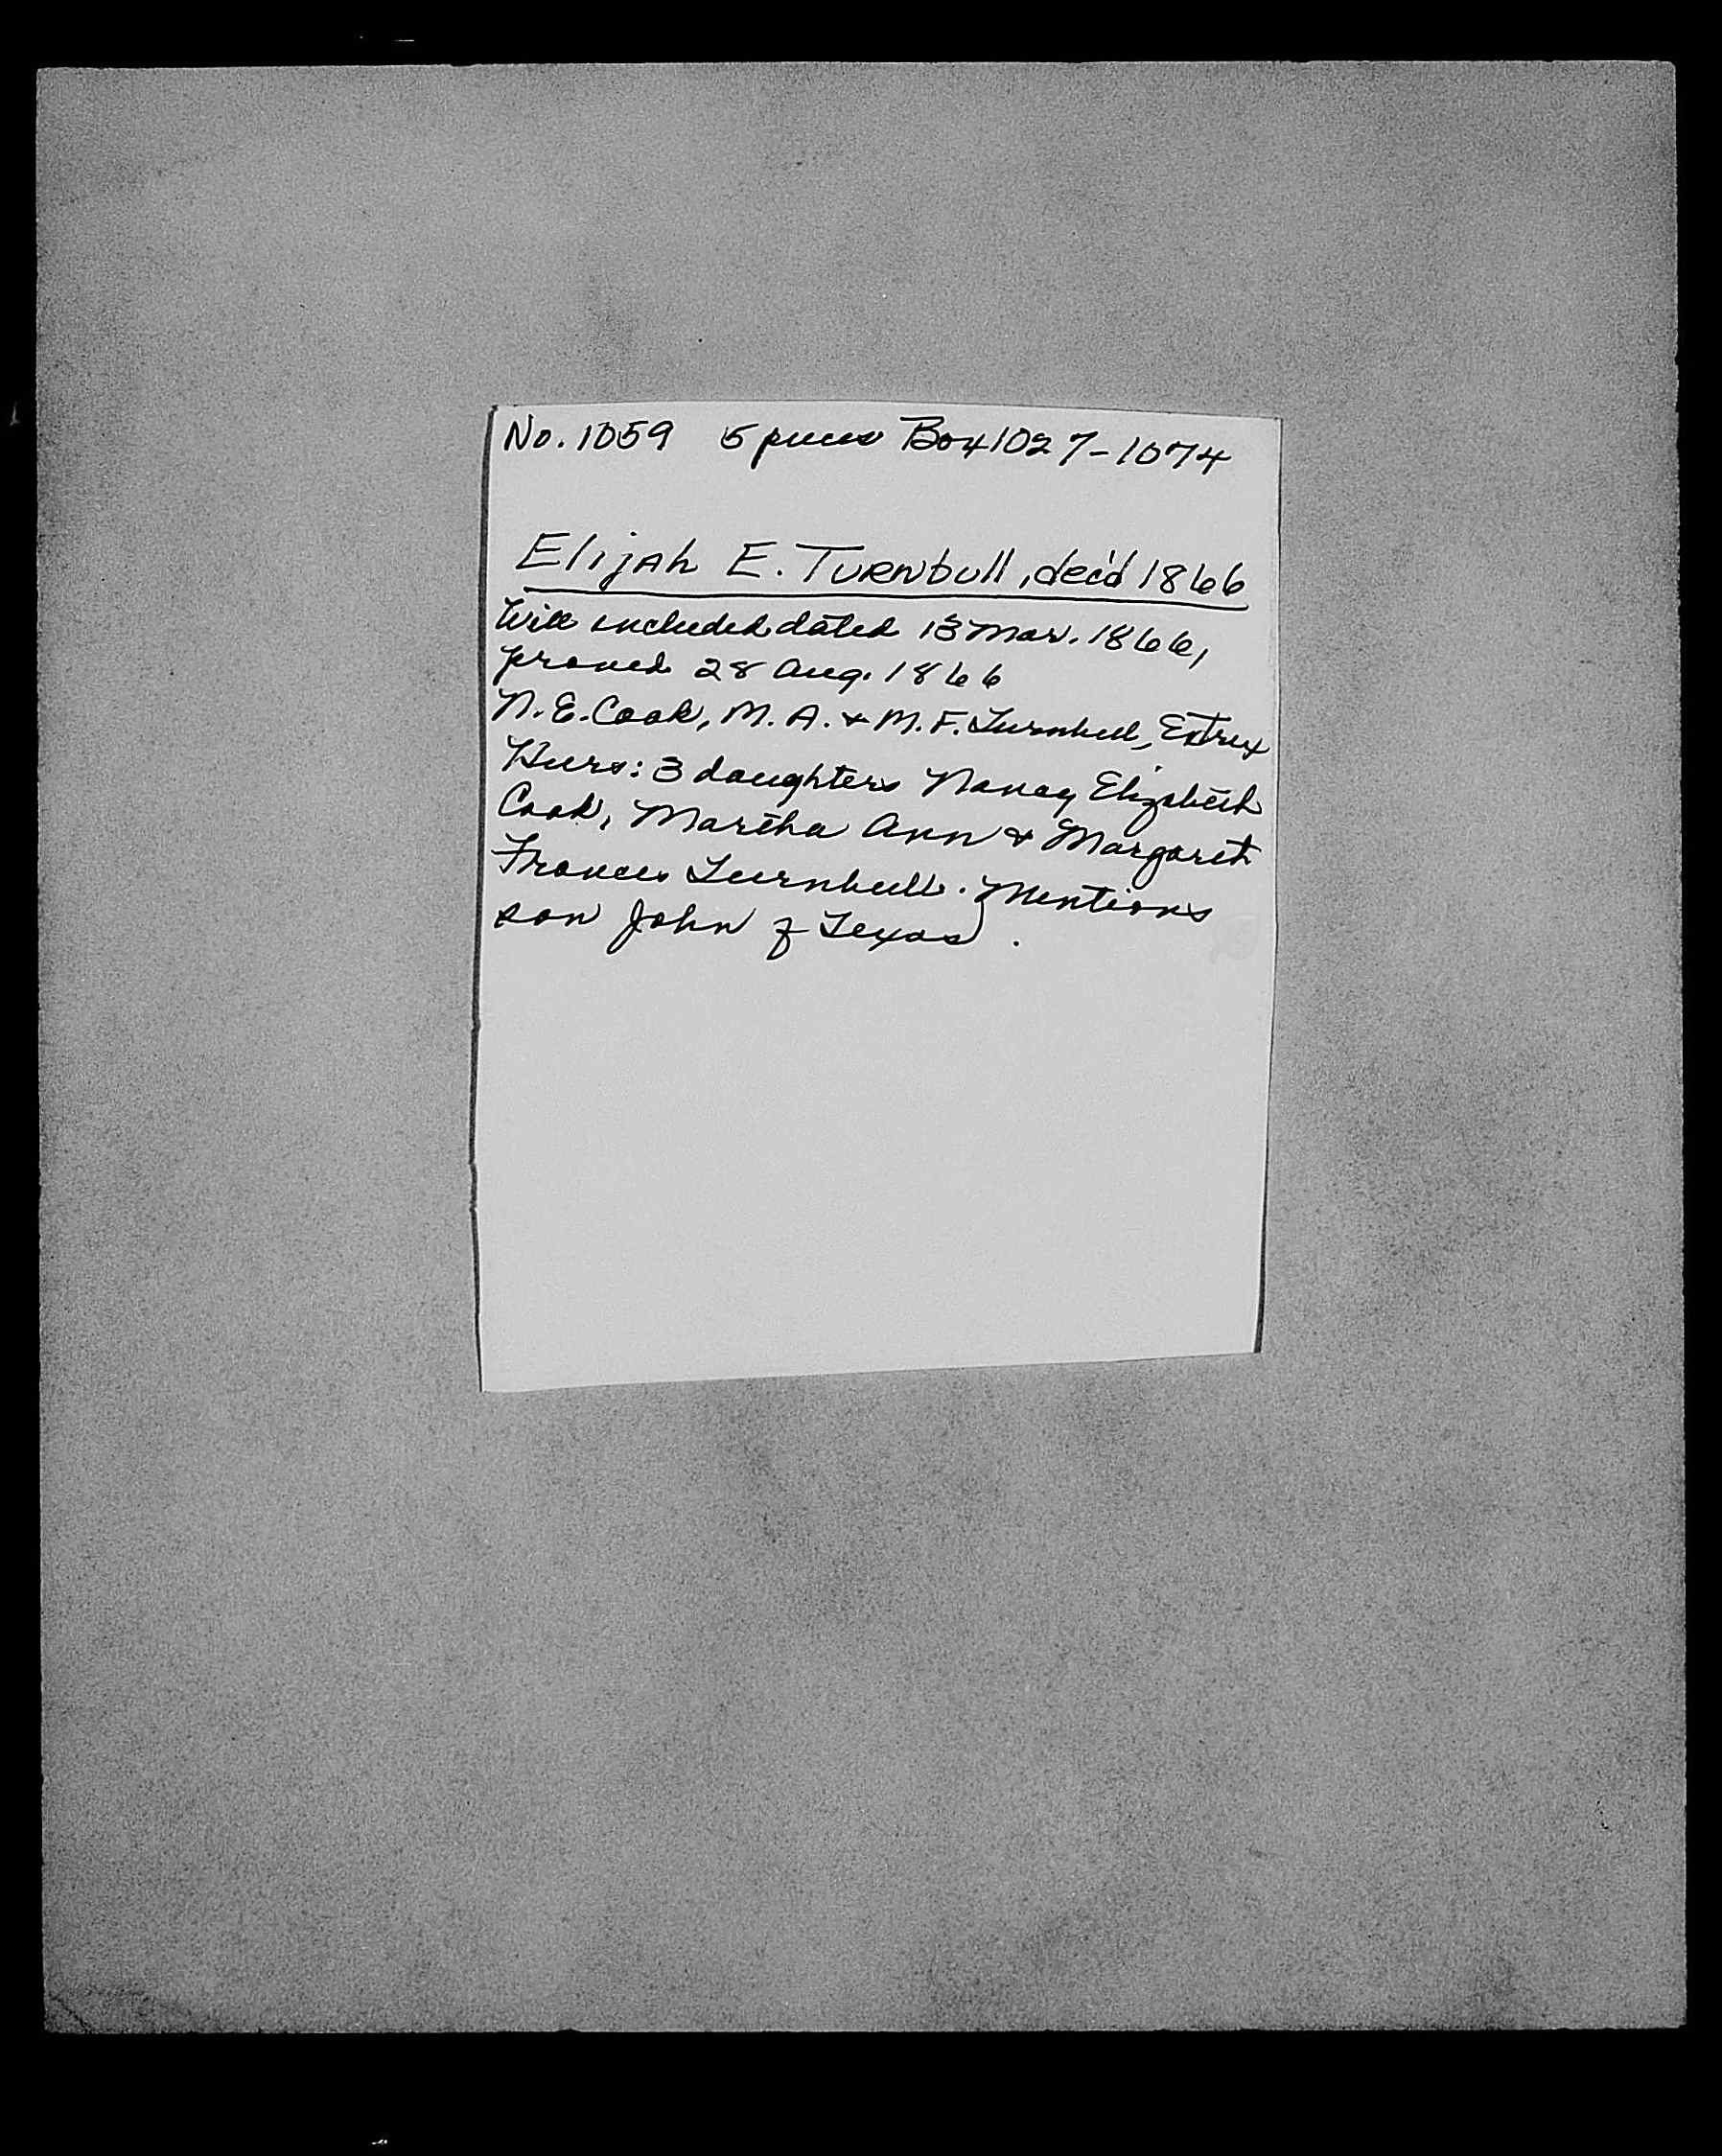 No. 1059 5 pieces Box 1027-1074
Elijah E. Turnbull, dec'd 1866
Will included dated 13 Mar. 1866,
proved 28 Aug. 1866
N. E. Cook, M. A. & M. F. Turnbull, Extrix
Heirs: 3 daughters Nancy Elizabeth
Cook, Martha Ann & Margaret
Frances Turnbull. Mentions
son John of Texas.